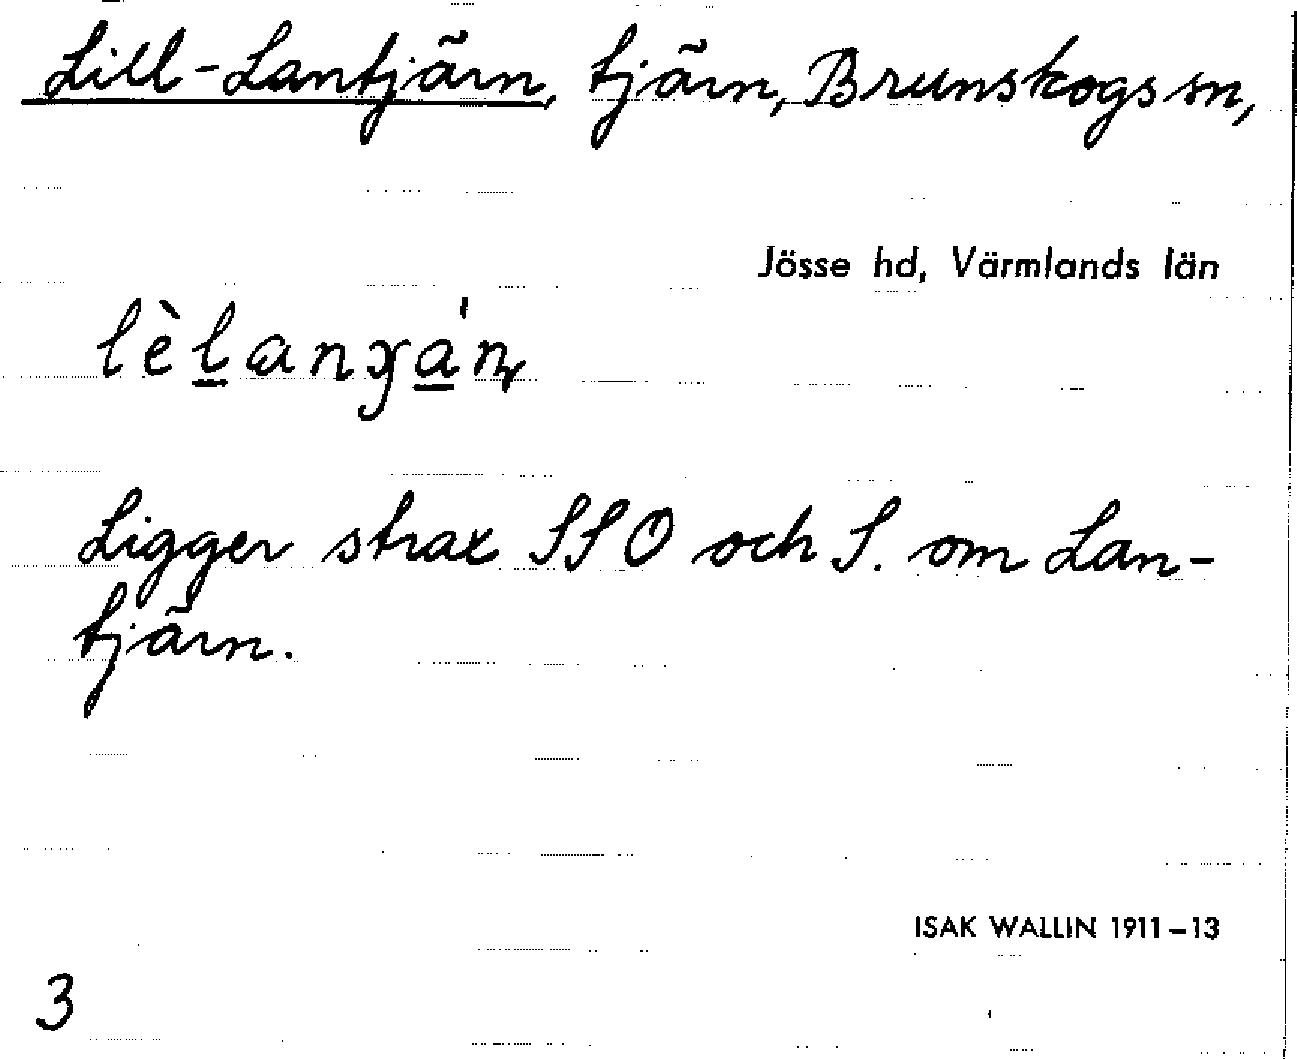 Lill-Lantjärn, tjärn, Brunskogs sn,
Jösse hd, Värmlands län
Ligger strax SSO och S. om Lan-
tjärn.
ISAK WALLIN 1911–13
3